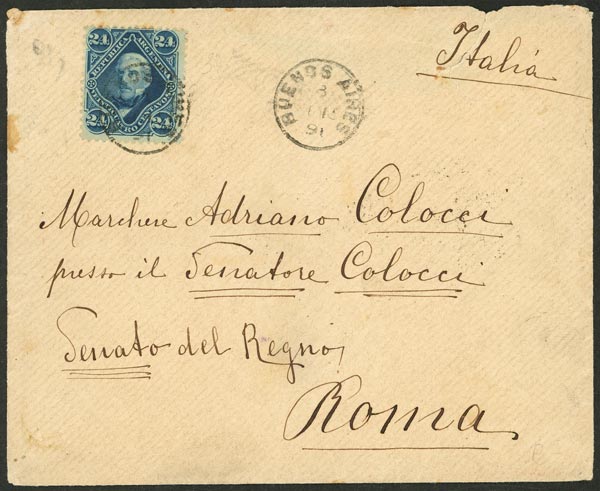 24 24
REPUBLICA ARGENTINA
VEINTICUATRO CENTAVOS
24 24
Italia
BUENOS AIRES
91
Marchese Adriano Colocci
presso il Senatore Colocci
Senato del Regno,
Roma